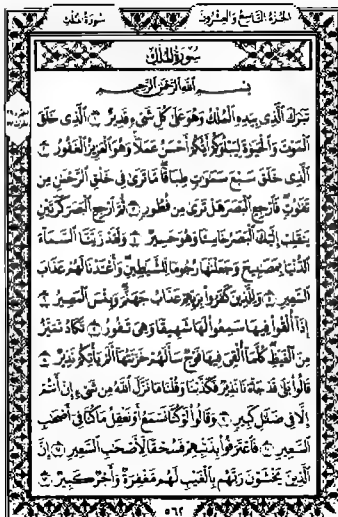 سورة الملك الجزء التاسع والعشرون
سورة الملك
بسم الله الرحمن الرحيم
تبرك الذي بيده الملك وهو على كل شيء قدير ١ الذي خلق
الموت والحيوة ليبلوكم أيكم أحسن عملا وهو العزيز الغفور ٢
الذي خلق سبع سموت طباقا ما ترى في خلق الرحمن من
تفوت فارجع البصر هل ترى من فطور ٣ ثم ارجع البصر كرتين
ينقلب إليك البصر خاسئا وهو حسير ٤ ولقد زينا السماء
الدنيا بمصبيح وجعلنها رجوما للشيطين وأعتدنا لهم عذاب
السعير ٥ وللذين كفروا بربهم عذاب جهنم وبئس المصير ٦
إذا ألقوا فيها سمعوا لها شهيقا وهي تفور ٧ تكاد تميز
من الغيظ كلما ألقي فيها فوج سألهم خزنتها ألم يأتكم نذير ٨
قالوا بلى قد جاءنا نذير فكذبنا وقلنا ما نزل الله من شيء إن أنتم
إلا في ضلل كبير ٩ وقالوا لو كنا نسمع أو نعقل ما كنا في أصحب
السعير ١٠ فاعترفوا بذنبهم فسحقا لأصحب السعير ١١ إن
الذين يخشون ربهم بالغيب لهم مغفرة وأجر كبير ١٢
٥٦٢